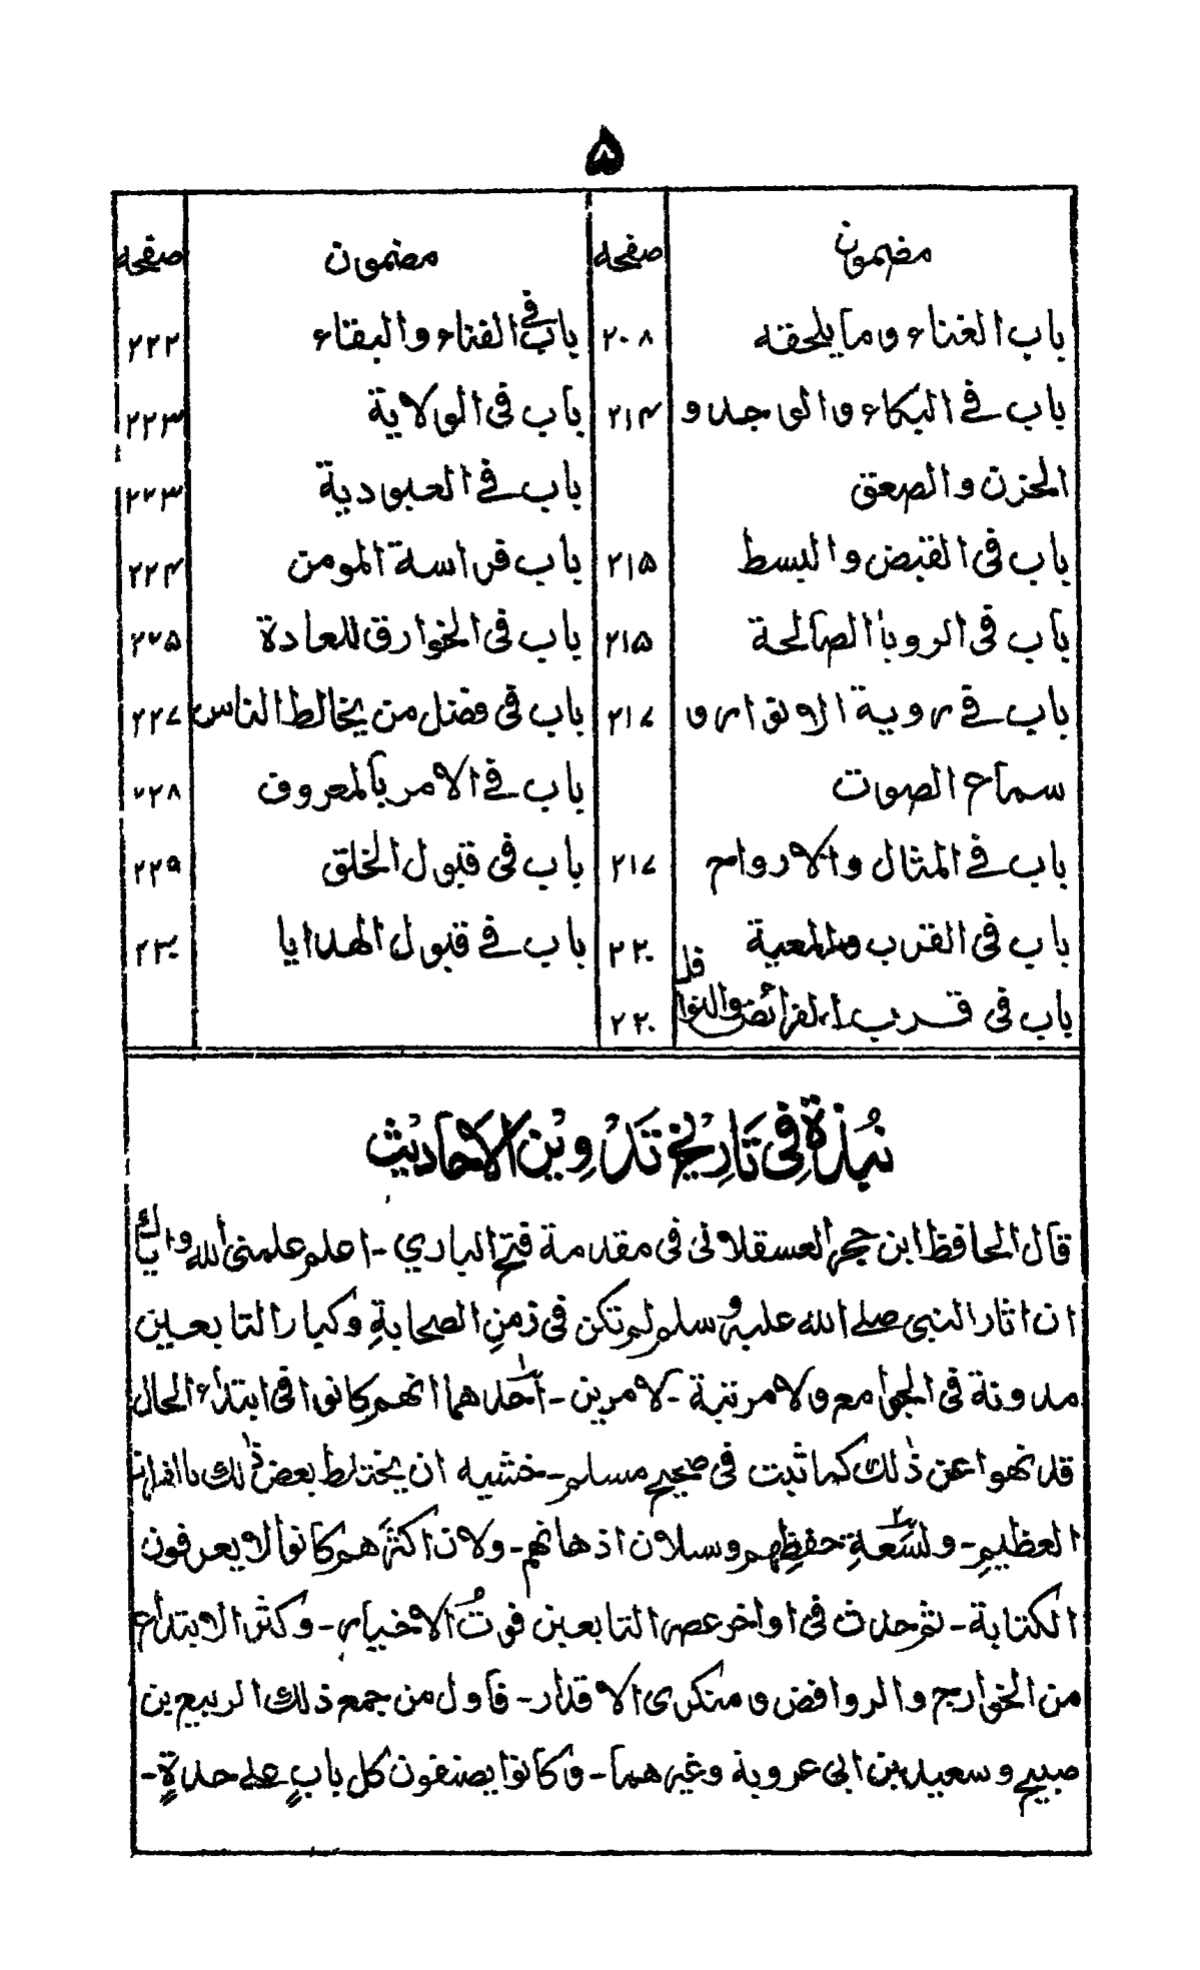 ۵
مضمون صفحه مضمون صفحه
باب الغناء وما يلحقه ۲۰۸ باب فى الفناء والبقاء ۲۲۲
باب فے البكاء و الوجد و ۲۱۴ باب فى الولاية ۲۲۳
الحزن والصعق باب فے العبودية ۲۲۳
باب فى القبض والبسط ۲۱۵ باب فراسة المومن ۲۲۴
باب فى الرويا الصالحة ۲۱۵ باب فى الخوارق للعادة ۲۲۵
باب فے روية الانوار و ۲۱۷ باب فى فضل من يخالط الناس ۲۲۷
سماع الصوت باب فے الامر بالمعروف ۲۲۸
باب فے المثال والارواح ۲۱۷ باب فى قبول الخلق ۲۲۹
باب فى القرب والمعية ۲۲۰ باب فے قبول الهدايا ۲۳۰
باب فى قرب الفرائض والنوافل ۲۲۰
نُبْذَةٌ فِى تَارِيْخِ تَدْوِيْنِ الْاَحَادِيْثِ
قال الحافظ ابن حجر العسقلانى فى مقدمة فتح الباري - اعلم علمنى الله واياك
ان اثار النبى صلے الله عليه وسلم لم تكن فى زمنِ الصحابةِ وكبار التابعين
مدونة فى الجوامع ولا مرتبة - لامرين - احدهما انهم كانوا فى ابتداء الحال
قد نهوا عن ذٰلك كما ثبت فى صحيح مسلم - خشيه ان يختلط بعض ذٰلك بالقران
العظيمِ - ولسَعةِ حفظِهم وسيلان اذهانهم - ولان اكثرَهم كانوا لا يعرفون
الكتابة - ثم حدث فى اواخر عصر التابعين فوتُ الاخيار - وكثر الابتداع
من الخوارج والروافض و منكرى الاقدار - فاول من جمع ذلك الربيع بن
صبيح و سعيد بن ابى عروبة وغيرهما - وكانوا يصنفون كل بابٍ علے حدةٍ -